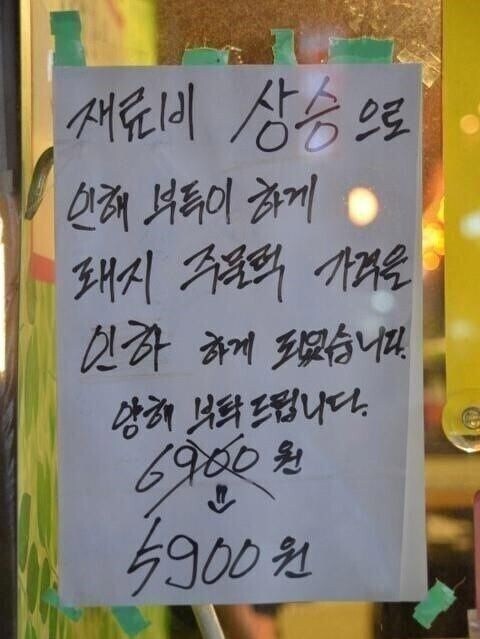 재류비 상승으로
인해 부득이 하게
돼지 주물럭 가격을
인하 하게 되었습니다.
양해 부탁드립니다.
6900원
⇓
5900원